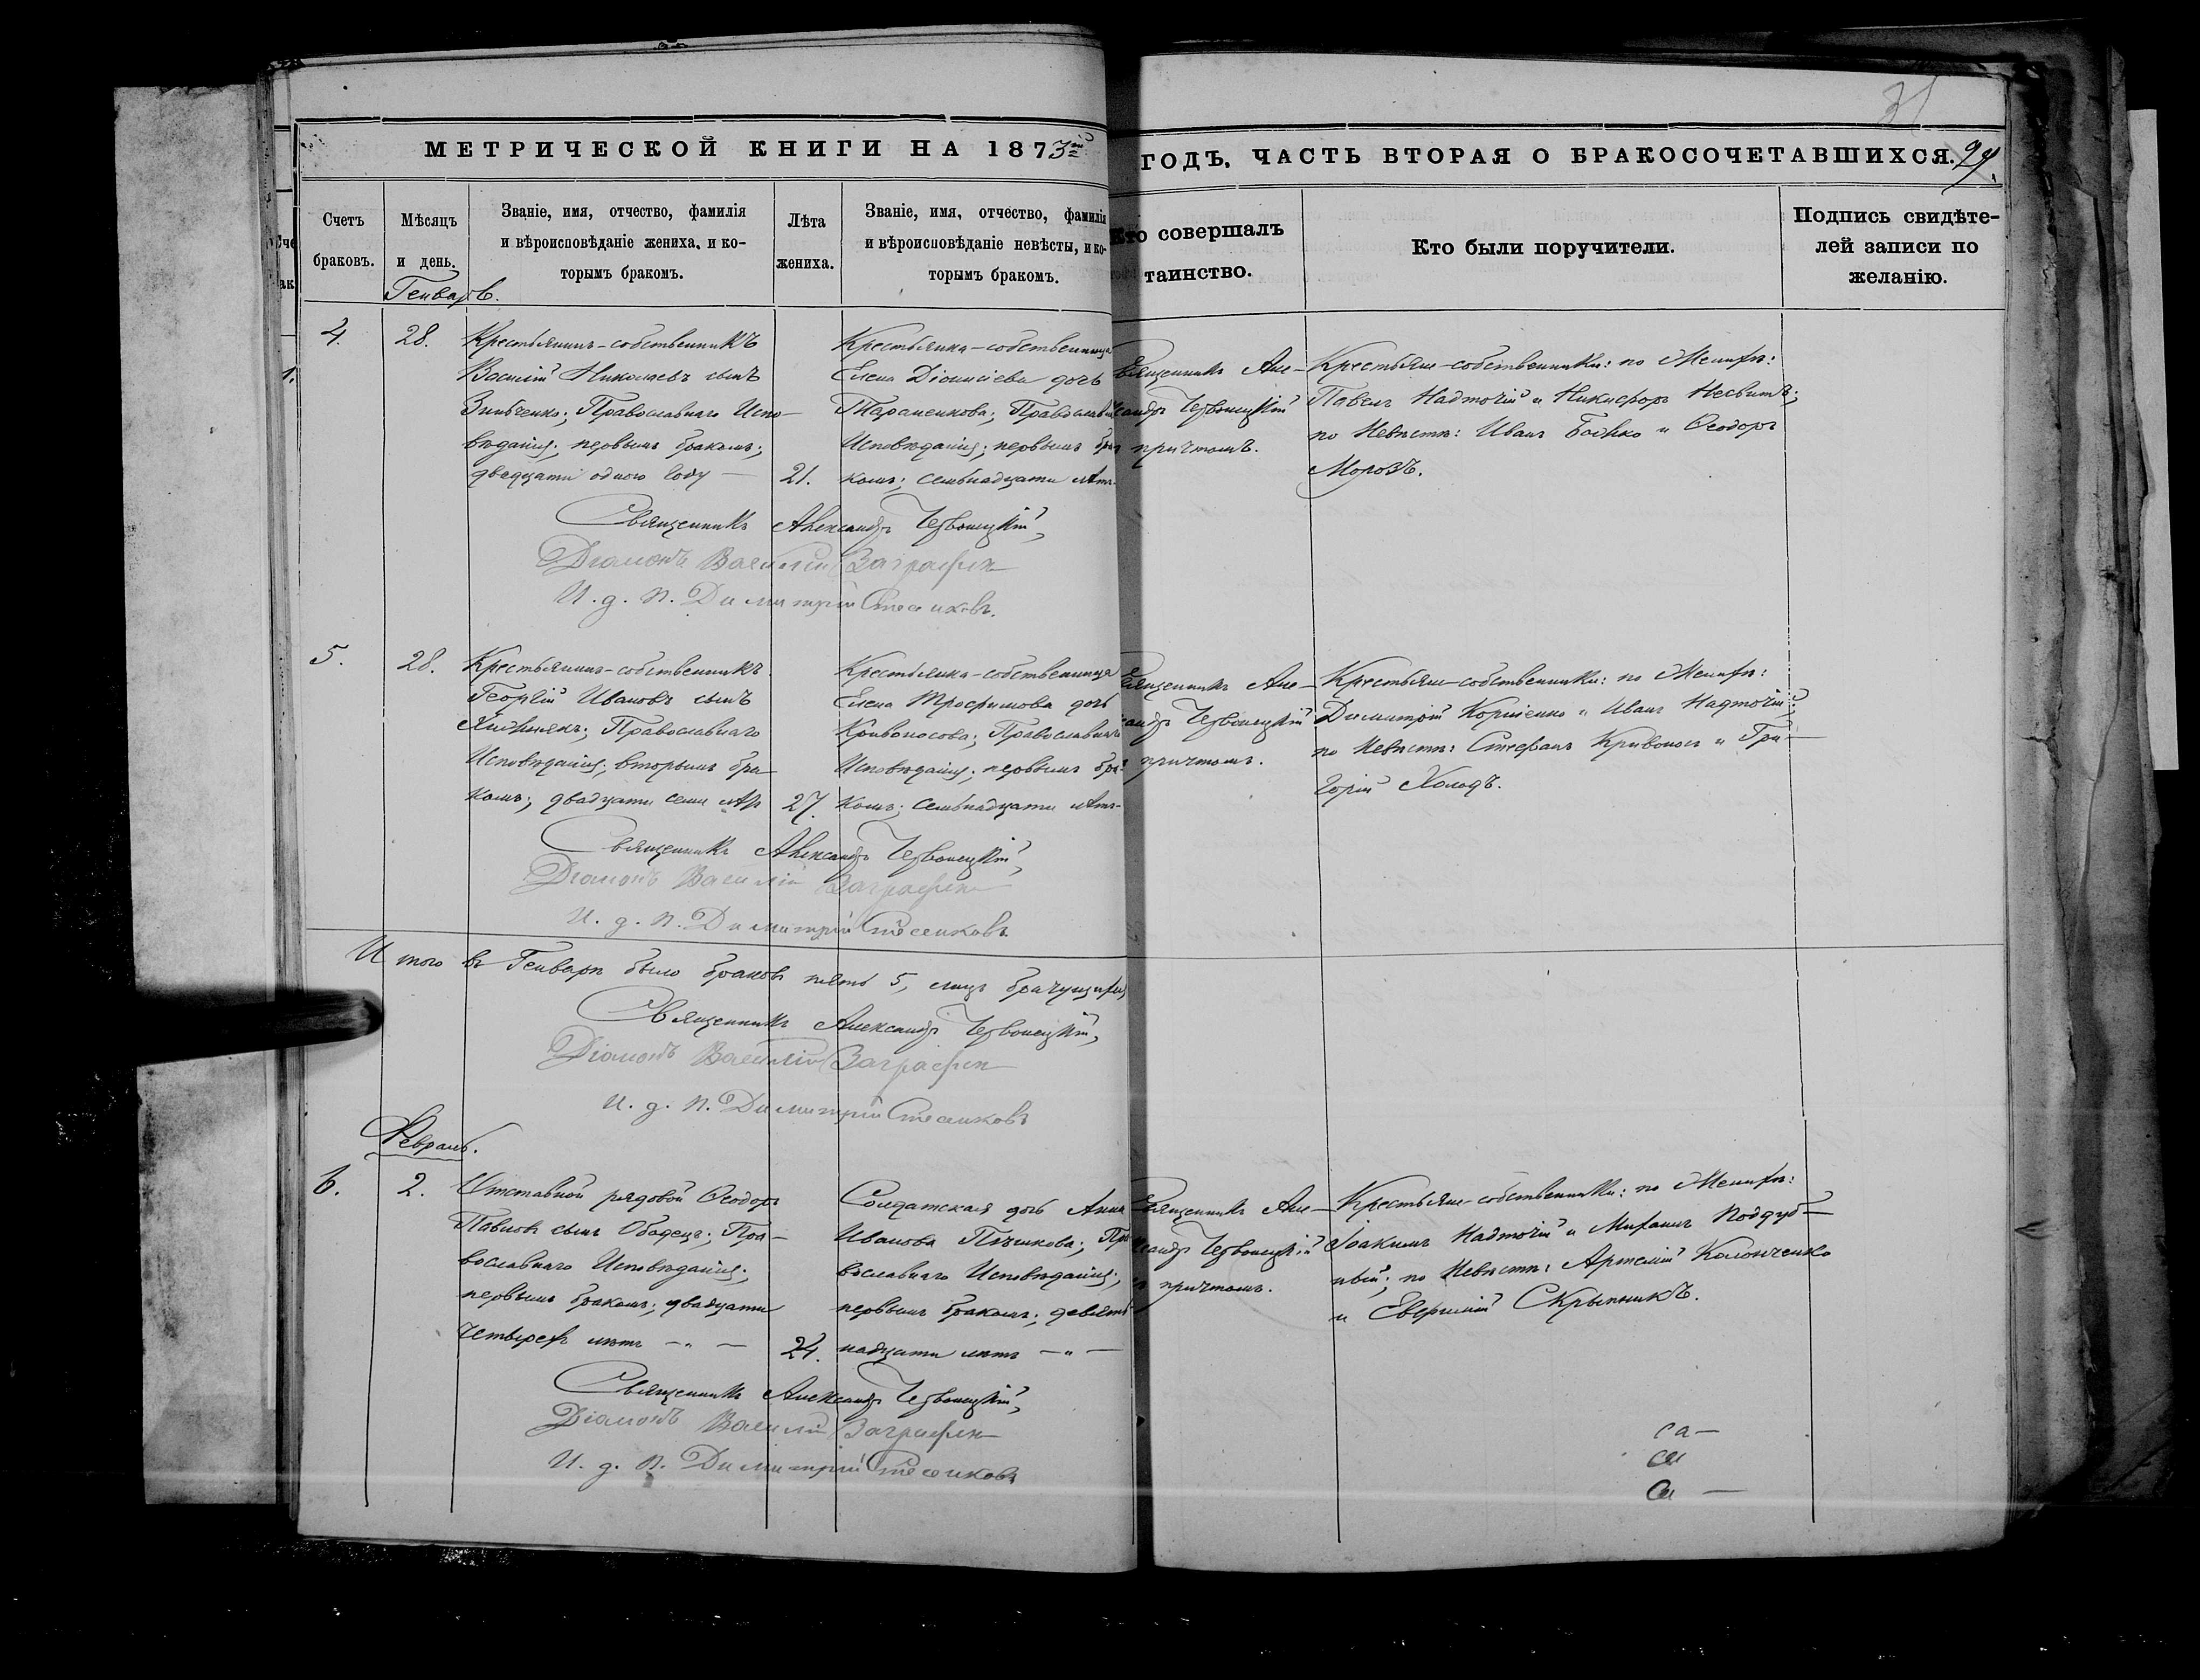 31
МЕТРИЧЕСКОЙ КНИГИ НА 1873й ГОДЪ. ЧАСТЬ ВТОРАЯ О БРАКОСОЧЕТАВШИХСЯ.
Счетъ браковъ.
Мѣсяцъ и день.
Званіе, имя, отчество, фамилія
и вѣроисповѣданіе жениха, и ко-
торымъ бракомъ.
Лѣта жениха.
Званіе, имя, отчество, фамилія
и вѣроисповѣданіе невѣсты, и ко-
торымъ бракомъ.
Кто совершалъ
таинство.
Кто были поручители.
Подпись свидѣте-
лей записи по
желанію.
Генварь.
4.
28.
Крестьянинъ-собственникъ
Василій Николаевъ сынъ
Зинченко; Православнаго Испо-
вѣданія; первымъ бракомъ;
двадцати одного году —
21.
Крестьянка-собственница
Елена Діонисіева дочь
Тараненкова; Православнаго
Исповѣданія; первымъ бра
комъ; семьнадцати лѣтъ
Священникъ Але-
ксандръ
причтомъ.
Крестьяне-собственники: по Женихѣ:
Павелъ Надточій и Никифоръ Несвитъ;
по Невѣстѣ: Иванъ Бойко и Ѳеодоръ
Морозъ.
Священникъ Александръ
Діаконъ Василій
И. д. п. Димитрій
5.
28.
Крестьянинъ-собственникъ
Георгій Ивановъ сынъ
Православнаго
Исповѣданія; вторымъ бра
комъ; двадцати семи лѣтъ
27.
Крестьянка-собственница
Елена Трофимова дочь
Кривоносова; Православнаго
Исповѣданія; первымъ бра-
комъ; семьнадцати лѣтъ
Священникъ Але-
ксандръ
причтомъ.
Крестьяне-собственники: по Женихѣ:
Димитрій Корніенко и Иванъ Надточій;
по Невѣстѣ: Стефанъ Кривоносъ и Гри-
горій Холодъ.
Священникъ Александръ
Діаконъ Василій
И. д. п. Димитрій
Итого въ Генварѣ было браковъ пять 5, лицъ брачущихся
Священникъ Александръ
Діаконъ Василій
И. д. п. Димитрій
Февраль.
6.
2.
Отставной рядовой Ѳеодоръ
Павловъ сынъ Ободецъ; Пра-
вославнаго Исповѣданія;
первымъ бракомъ; двадцати
четырехъ лѣтъ — " —
24.
Солдатская дочь Анна
Иванова Пѣшкова; Пра
вославнаго Исповѣданія;
первымъ бракомъ; девять
надцати лѣтъ — " —
Священникъ Але-
ксандръ
съ причтомъ.
Крестьяне-собственники: по Женихѣ:
Іоакимъ Надточій и Михаилъ Поддуб-
ный; по Невѣстѣ: Артемій Колонченко
и Евфимій Скрыпникъ.
Священникъ Александръ
Діаконъ Василій
И. д. п. Димитрій